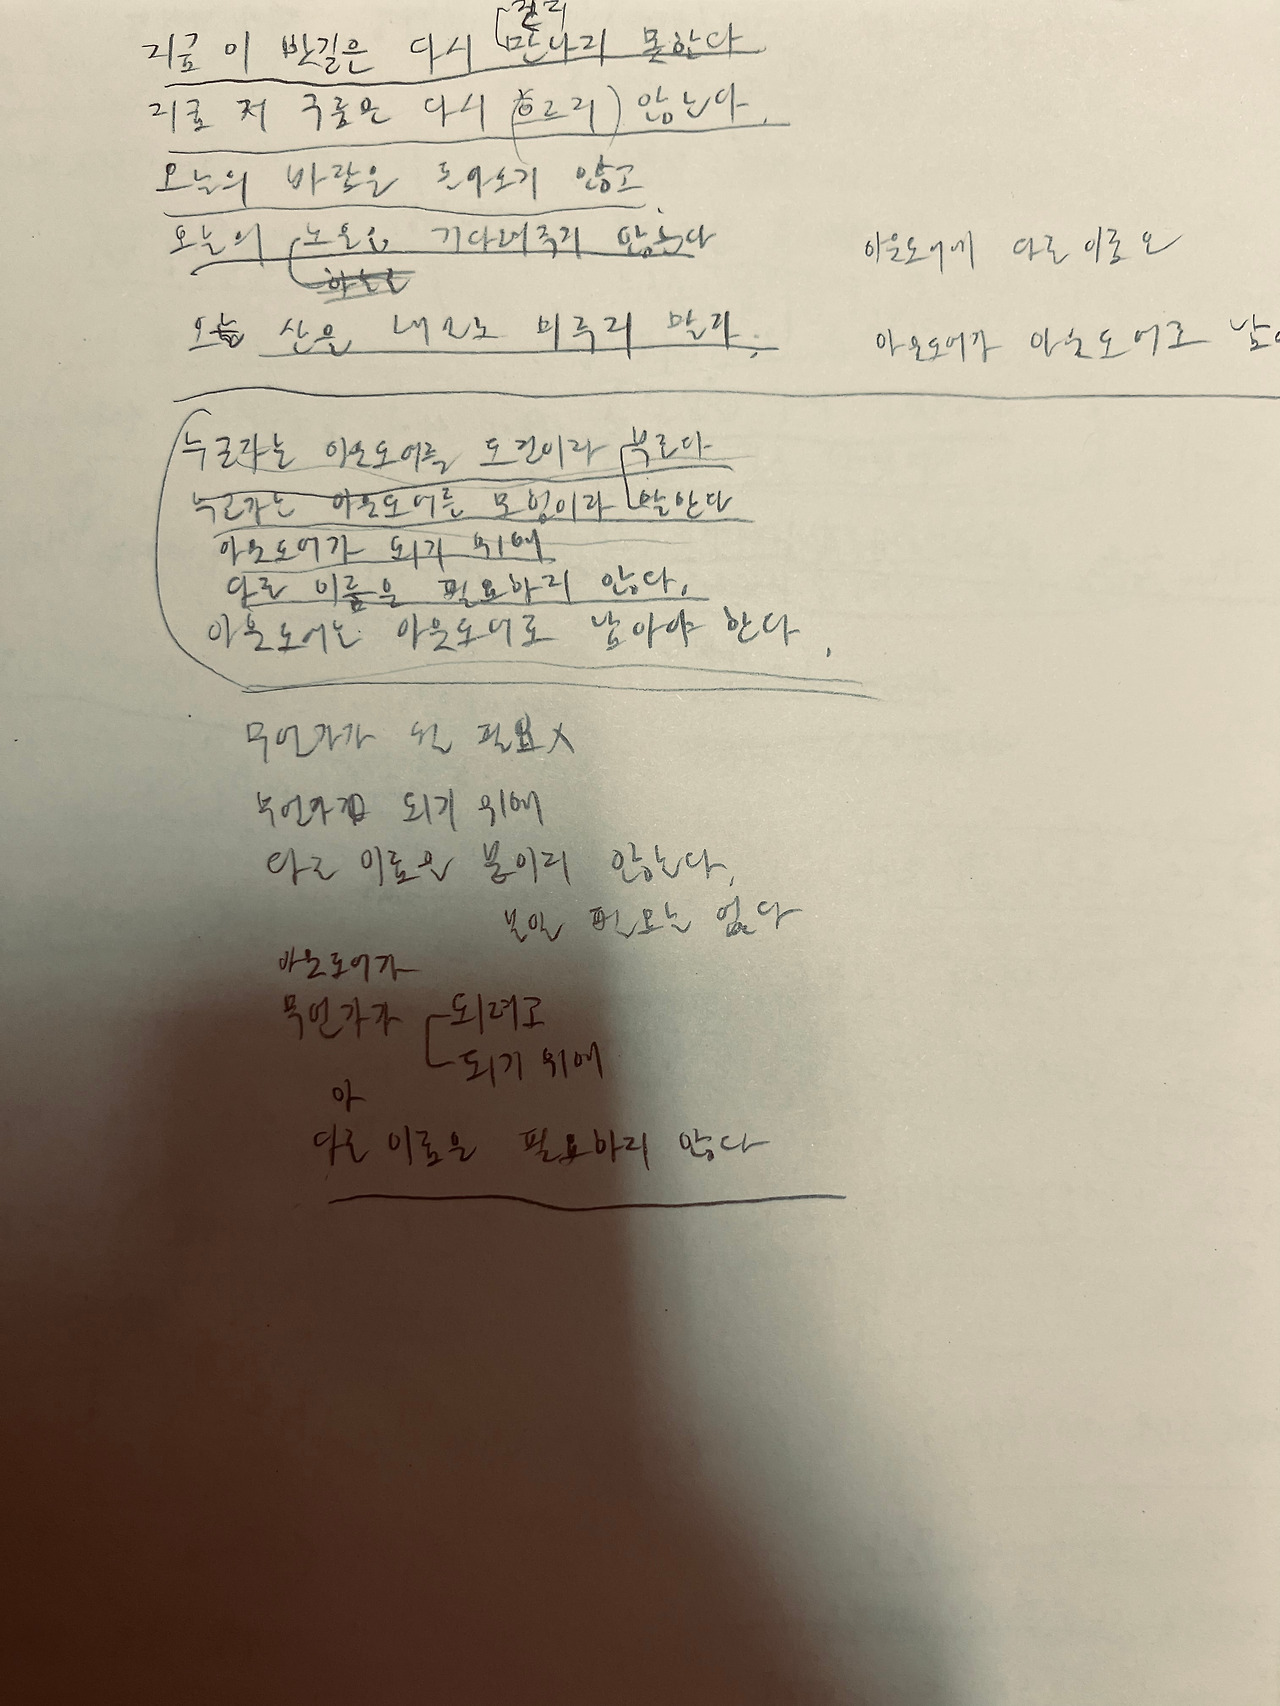 걷지
지금 이 밤길은 다시 만나지 못한다
지금 저 구름은 다시 흐르지 않는다.
오늘의 바람은 돌아오지 않고
오늘의 노을은 기다려주지 않는다
하늘은
오늘 산을 내일로 미루지 말라.
아웃도어에 다른 이름은
아웃도어가 아웃도어로
누군가는 아웃도어를 도전이라 부른다
누군가는 아웃도어를 모험이라 말한다
아웃도어가 되기 위해
다른 이름은 필요하지 않다.
아웃도어는 아웃도어로 남아야 한다.
무언가가 될 필요 X
무언가가 되기 위해
다른 이름을 붙이지 않는다.
붙일 필요는 없다
아웃도어가
무언가가 되려고
되기 위해
아
다른 이름은 필요하지 않다